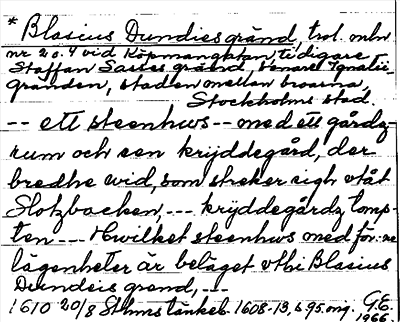 * Blasius Dundies gränd, trol. mln
nr 2 o. 4 vid Köpmangatan, tidigare
Staffan Sasses gränd, senare Ignatii-
gränden, staden mellan broarna,
Stockholms stad.
-- ett steenhws -- med ett gårdz-
rum och een krÿddegård, der
bredhe wid, som streker sigh vtåt
Slotzbacken, --- krÿddegårdz tomp-
ten --- Hwilket steenhws med för:ne
lägenheter är beläget vthi Blasius
Dundeis grend, ---
1610 20/8 Sthms tänkeb. 1608-13, s. 95. orig. G.E.
1966.